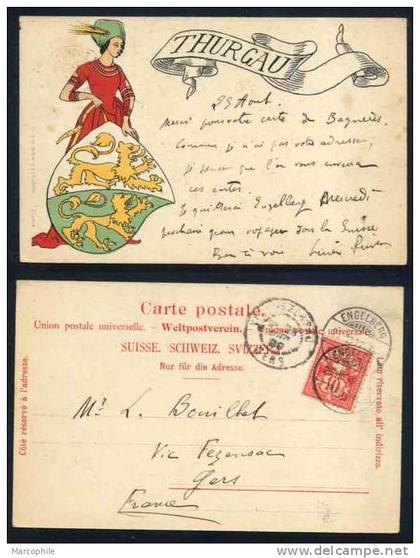 THURGAU
29 Aout.
Merci pour votre carte de Bagnères.
Comme je n'ai pas votre adresse,
je pense que l'on vous enverra
ces cartes.
Je quitterai Engelberg Mercredi
prochain pour voyager dans la Suisse
Bien à vous
Carte postale.
Union postale universelle. — Weltpostverein. — Unione postale universale
SUISSE. SCHWEIZ. SVIZZERA
Nur für die Adresse.
Côté réservé à l'adresse.
Lato riservato all' indirizzo.
ENGELBERG
10
GERS
Mr L. Bouilhet
Vic Fezensac
Gers
France
© Marcophile
delcampe.net